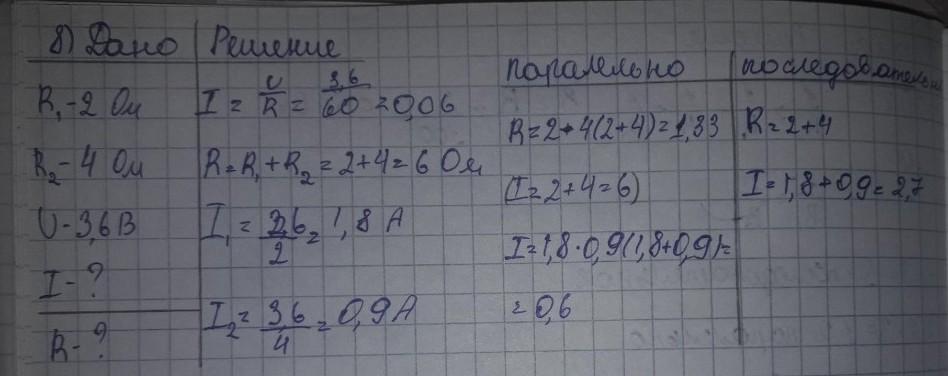 8) Дано Решение
R₁ - 2 Ом
R₂ - 4 Ом
U - 3,6 В
I - ?
R - ?
I = U/R = 3,6/60 = 0,06
R = R₁ + R₂ = 2 + 4 = 6 Ом
I₁ = 3,6/2 = 1,8 А
I₂ = 3,6/4 = 0,9 А
паралельно
R = 2 · 4(2+4) = 1,33
(I = 2+4 = 6)
I = 1,8 · 0,9(1,8+0,9) =
= 0,6
последовательно
R = 2+4
I = 1,8 + 0,9 = 2,7